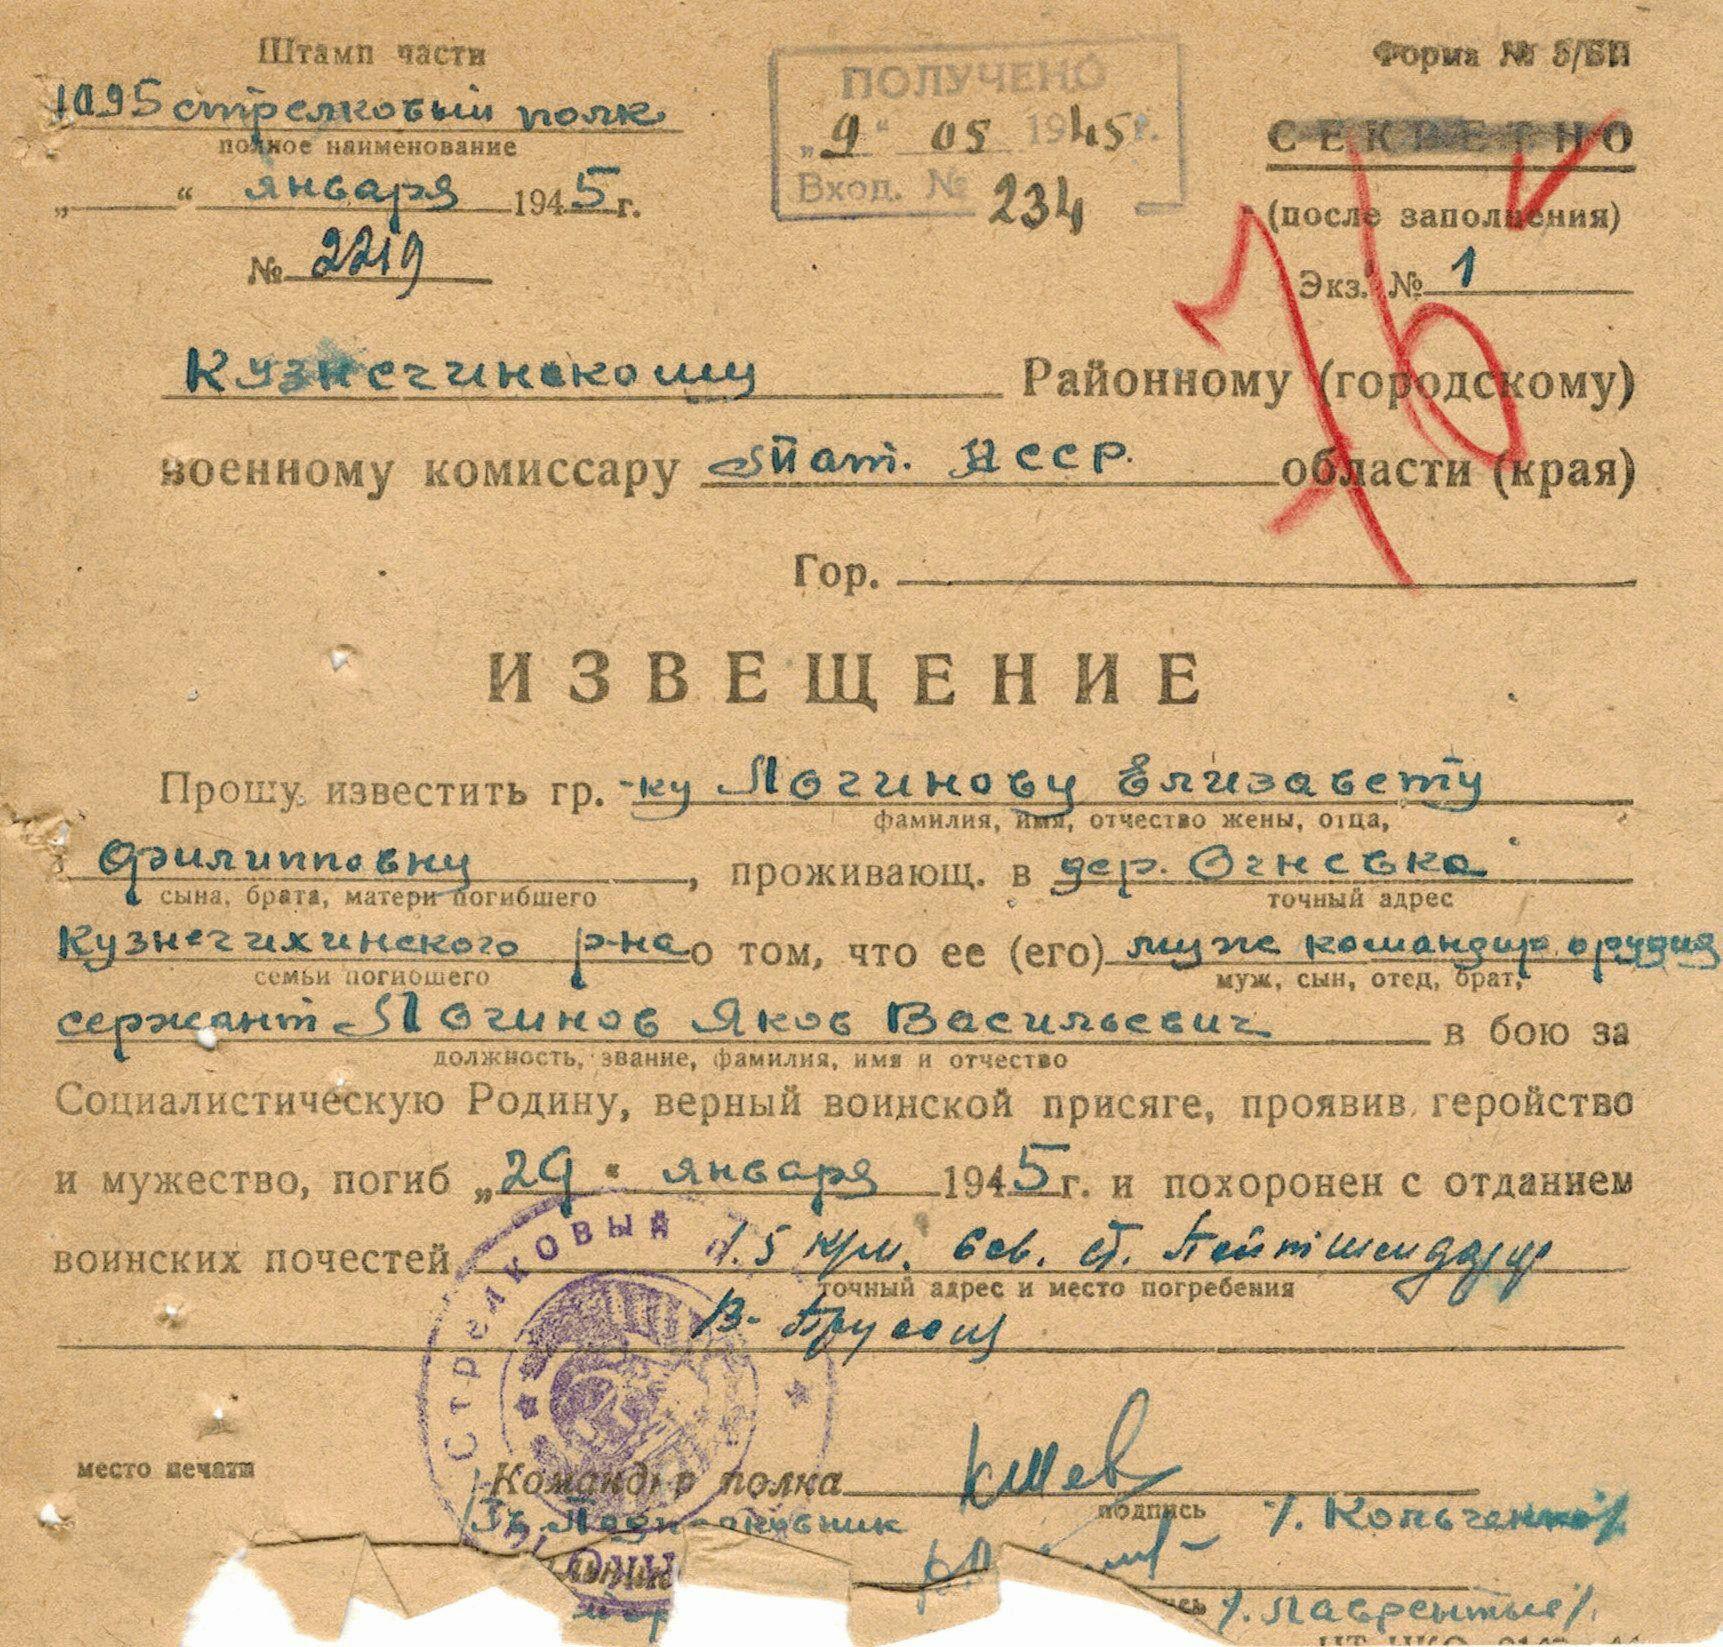 Штамп части
1095 стрелковый полк
полное наименование
„ “ января 1945 г.
№ 2219
ПОЛУЧЕНО
„9“ 05 1945 г.
Вход. № 234
Форма № 5/БП
СЕКРЕТНО
(после заполнения)
Экз. № 1
76
Кузнечинскому Районному (городскому)
военному комиссару Тат. АССР. области (края)
Гор.
ИЗВЕЩЕНИЕ
Прошу известить гр.-ку Логинову Елизавету
фамилия, имя, отчество жены, отца,
Филипповну, проживающ. в дер. Огневка
сына, брата, матери погибшего точный адрес
Кузнечихинского р-на о том, что ее (его) муж командир орудия
семьи погибшего муж, сын, отец, брат,
сержант Логинов Яков Васильевич в бою за
должность, звание, фамилия, имя и отчество
Социалистическую Родину, верный воинской присяге, проявив геройство
и мужество, погиб „29" января 1945 г. и похоронен с отданием
воинских почестей 1.5 км. сев. ст.
точный адрес и место погребения
В-Пруссия
Стрелковый
место печати
Командир полка
подпись
Гв. Подполковник /. Кольченко/
/. Лаврентьев/.